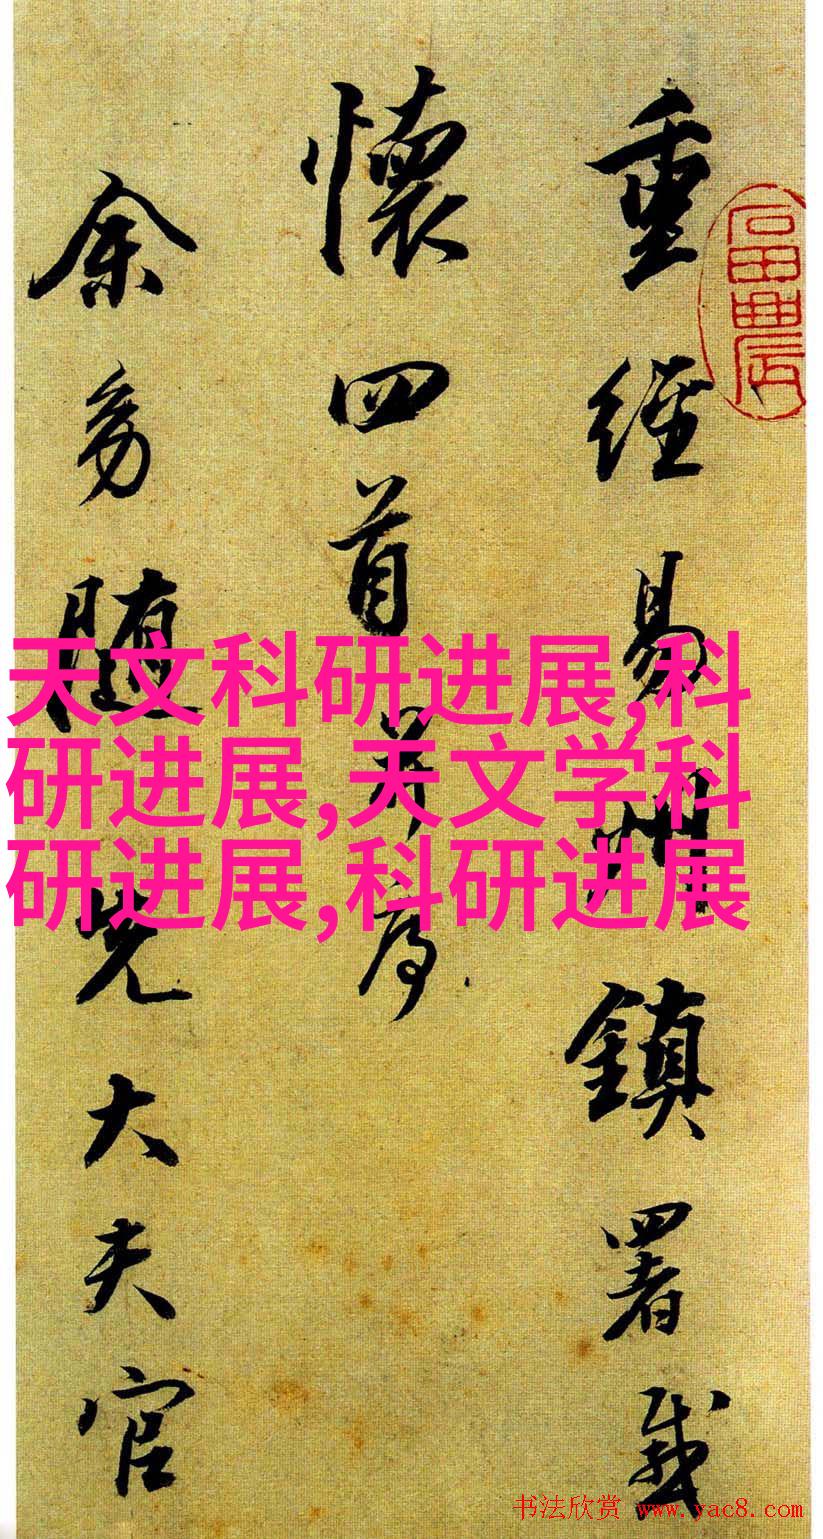 重經易州鎮署感
懷四首并序
余幼隨先大夫官
天文科研进展,科
研进展,天文学科
研进展,科研进展
書法欣赏 www.yac8.com